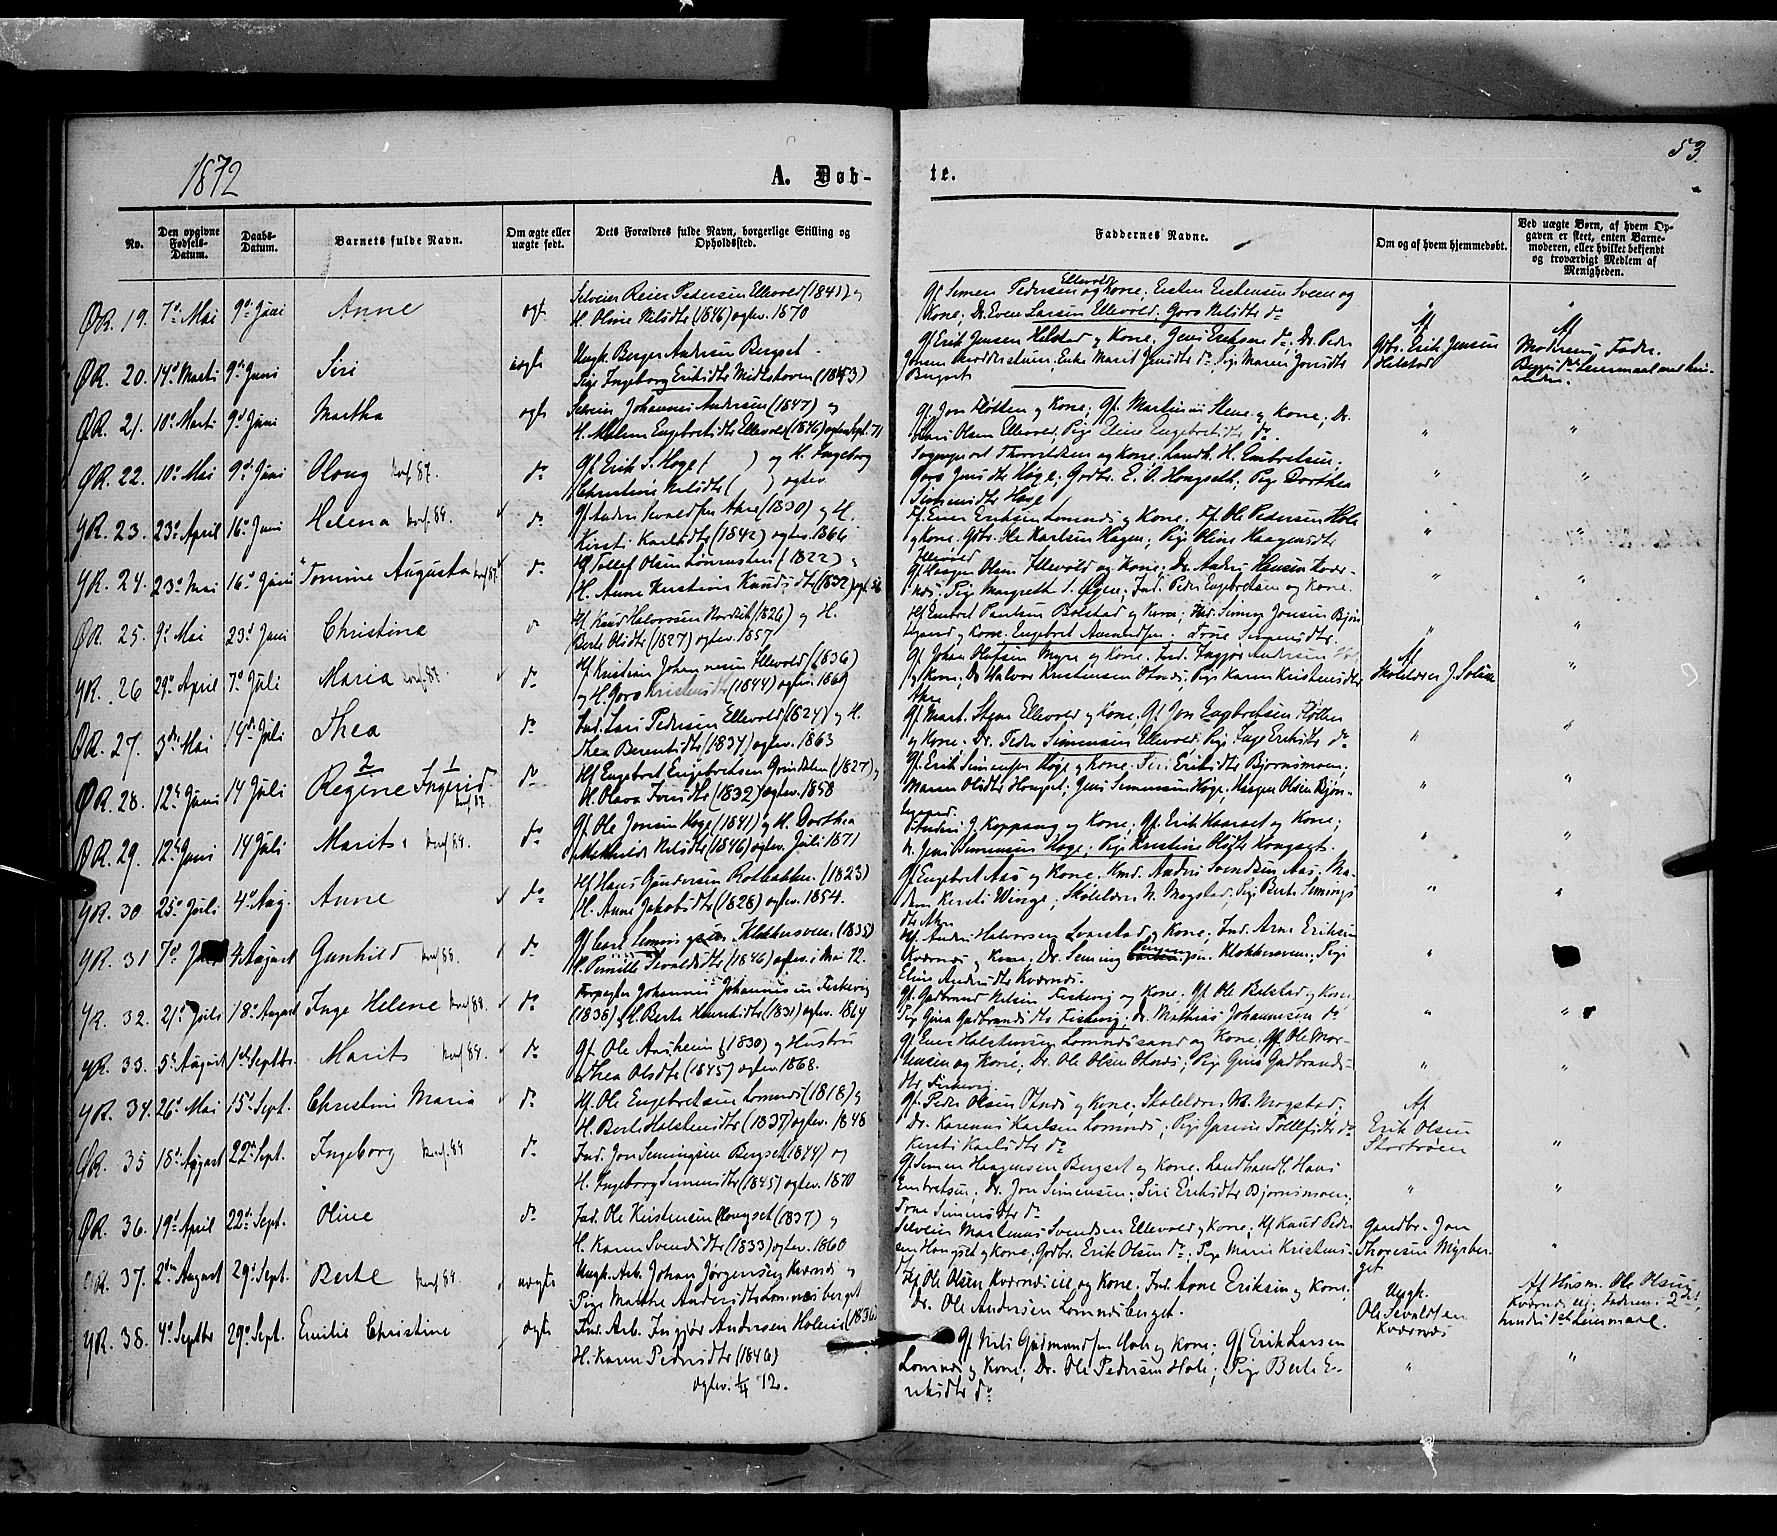 53.
1872
A. Døb-
te.
No.
Den opgivne Fødsels-Datum.
Daabs-Datum.
Barnets fulde Navn.
Om ægte eller uægte født.
Dets Forældres fulde Navn, borgerlige Stilling og Opholdssted.
Faddernes Navne.
Om og af hvem hjemmedøbt.
Ved uægte Børn, af hvem Opgaven er skeet, enten Barnemoderen, eller hvilket bekjendt og troværdigt Medlem af Menigheden.
ØR. 19. 7de Mai 9de Juni Anne ægte
Selveier Reier Pedersen Ellevold (1841) og
H. Oline Nilsdtr (1846) ægtev. 1870
Gf Simen Pedersen Ellevold og Kone; Esten Estensen Sveen og
Kone; Dr. Even Larsen Ellevold; Goro Nilsdtr do
ØR. 20. 14de Marts 9de Juni Siri uægte
Ungk. Berger Andersen Bergset
Pige Ingeborg Eriksdtr Midtskoven (1853)
Gf Erik Jensen Hilstad og Kone; Jens Eriksen do; Dr. Peder
Jonsen
Bergset
Af
Gdbr. Erik Jensen
Hilstad
Af
Moderen, Fader.
ØR. 21. 10de Marts 9de Juni Martha ægte
Selveier Johannes Andersen (1847) og
H. Malene Engebretsdtr Ellevold (1846) ægtev Sept. 71
Gf. Jon Fløtten og Kone; Gf. Martinus Stene og Kone; Dr.
Lars Olsen Ellevold; Pige Eline Engebretsdtr do
ØR. 22. 10de Mai 9de Juni Oloug konf. 87. do
Gf. Erik S. Høge ( ) og H. Ingeborg
Christine Nilsdtr ( ) ægtev.
Thorvaldsen og Kone; Landh. H. Embretsen;
Goro Jensdtr Høge; Gdbr. E. O. Hougseth; Pige Dorthea
Simensdtr Høge
YR. 23. 23de April 16de Juni Helena konf. 89. do
Gf Anders Sevaldsen Akre (1830) og H.
Kirsti Karlsdtr (1842) ægtev. 1866
Gf. Ener Eriksen Lomnæs og Kone; Gf. Ole Pedersen Hole
og Kone. Gdbr. Ole Karlsen Hagen; Pige Oline Haagensdtr
Ellevold
YR. 24. 23de Mai 16de Juni Tomine Augusta konf. 87. do
Hf Tollef Olsen Lønnesten (1822) og
H. Anne Kerstine Knudsdtr (1832)
Gf Haagen Olsen Ellevold og Kone; Dr. Anders Hansen
Pige Margrethe S. Øgen; Ind. Peder Engebretsen og Kone.
ØR. 25. 9de Mai 23de Juni Christine do
Hf Knud Halvorsen Nordset (1826) og H.
Berte Olsdtr (1827) ægtev. 1857
Hf Embret Paulsen Bolstad og Kone; Ind. Siming Jonsen
og Kone. Engebret Amundsen. Trine Simensdtr.
YR. 26 29de April 7de Juli Maria konf. 87. do
Hf Kristian Johannesen Ellevold (1836)
og H. Goro Kristensdtr (1844) ægtev. 1869
Gf Johan Olufsen Myre og Kone. Ind. Ingjør Andersen
og Kone; Dr. Halvor Kristensen Otnæs; Pige Karen Kristensdtr
Akre
Af
Skolelærer J. Solem
ØR. 27. 3de Mai 14de Juli Thea do
Ind. Lars Pedersen Ellevold (1824) og H.
Thea Berentsdtr (1837) ægtev. 1863
Gf Mart. Stene Ellevold og Kone; Gf. Jon Engebretsen Fløtten
og Kone. Dr. Peder Simensen Ellevold; Pige Inge Eriksdtr do
ØR. 28. 12te Juni 14 Juli Regine Ingerid 2 1 konf. 87. do
Hf Engebret Engebretsen Grindalen (1827) og
H. Olava Iversdtr (1832) ægtev. 1858
Gf. Erik Simensen Høge og Kone. Siri Eriksdtr Bjørnsmoen;
Maren Olsdtr Hougset; Jens Simensen Høge; Haagen Olsen Bjøn-
ØR. 29. 12te Juni 14 Juli Marit konf. 89. do
Gf. Ole Jonsen Høge (1841) og H. Dorthea
Mathilde Nilsdtr (1846) ægtev. Juli 1871
Anders J. Koppang og Kone; Gf. Erik Haarset og Kone;
Dr. Jens Simensen Høge; Pige Kristine Olsdtr Hougset.
YR. 30 25de Juli 4de Aug. Anne do
Hf Hans Gundersen Rotbakken (1823)
H. Anne Jakobsdtr (1828) ægtev. 1854.
Gf Engebret Aas og Kone. Kmd. Anders Svendsen Aas, Ma-
dam Kirsti Winge, Skolelærer N. Mogstad, Pige Berte Simings
dtr Akre
YR. 31 7de 4 August Gunhild konf. 88. do
Gf Carl Simingsen Klokkersveen (1835)
H. Pernille Sevaldsdtr (1846) ægtev. i Mai 72.
Hf. Anders Halvorsen Lvarstad og Kone; Ind. Arne Eriksen
Kværnæs og Kone; Dr. Siming Simingsen Klokkersveen; Pige
Eline Andersdtr Kværnæs.
YR. 32. 21de Juli 18de August Inge Helene konf. 89. do
Forpagter Johannes Johannesen Fiskevig
(1836) og H. Berte Henriksdtr (1831) ægtev. 1864
Gf. Gudbrand Nilsen Fiskevig og Kone; Gf Ole Bolstad og Kone
Pige Gina Gudbrandsdtr Fiskevig; Dr. Mathias Johannesen do
YR. 33. 5te August 1ste Septbr. Marit konf. 89. do
Gf. Ole Aasheim (1830) og Hustru
Thea Olsdtr (1845) ægtev. 1868.
Gf Ener Halstensen Lomnæssand og Kone; Gf. Ole Mor-
tensen og Kone, Dr. Ole Olsen Otnæs; Pige Gina Gudbrands-
dtr Fiskevig.
YR. 34. 26de Mai 15de Sept. Christine Maria do
Hf. Ole Engebretsen Lomnæs (1818) og
H. Berte Halstensdtr (1837) ægtev. 1848
Gf. Peder Olsen Otnæs og Kone; Skolelærer N. Mogstad;
Dr. Karenus Karlsen Lomnæs; Pige Gurine Tollefsdtr do
Kirsti Karlsdtr do
Af
Erik Olsen
Storsrøen
ØR. 35 18de August 22de Sept. Ingeborg konf. 89 do
Ind. Jon Simingsen Bergset (1844) og
H. Ingeborg Simensdtr (1845) ægtev. 1870
Gf Simen Haagensen Bergset og Kone. Landhandl. Hans
Embretsen; Dr. Jon Simensen; Siri Eriksdtr Bjørnsmoen;
Trine Simensdtr do
ØR. 36. 19de April 22de Sept. Oline do
Ind. Ole Kristensen Hougset (1837) og
H. Karen Svendsdtr (1833) ægtev. 1860
Selveier Martinus Svendsen Ellevold og Kone; Hf Knud Peder
sen Hougset og Kone; Gdbr. Erik Olsen do; Pige Marie Kristens-
Gaardbr. Jon
Thoresen Myrber-
get
ØR. 37. 2den August 29de Sept. Berte konf. 89. uægte
Ungk. Arb. Johan Jørgensen Kværnæs og
Pige Marthe Andersdtr Lomnæsberget
Hf. Ole Olsen Kværnæseie og Kone. Ind. Arne Eriksen og Kone;
Dr. Ole Andersen Lomnæsberget.
Ungk.
Ole Sevaldsen
Kværnæs
Af Husm. Ole Olsen
Kværnæseie, Faderen 2det,
hendes 1ste Leiermaal.
YR. 38. 4de Septbr 29de Sept. Emilie Christine ægte
Ind. Arb. Ingjør Andersen Holen (1836)
H. Karen Pedersdtr (1846)
ægtev. 1/4 72.
Gf Nils Gudmundsen Hole og Kone; Gf Erik Larsen
Lomnæs og Kone; Dr. Ole Pedersen Hole; Pige Berte E-
riksdtr do